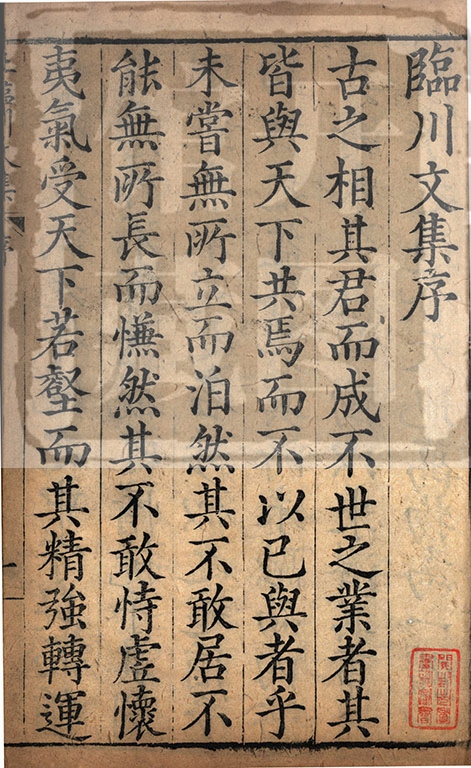 臨川文集序
古之相其君而成不世之業者其
皆與天下共焉而不以已與者乎
未嘗無所立而泊然其不敢居不
能無所長而慊然其不敢恃虛懷
夷氣受天下若壑而其精強轉運